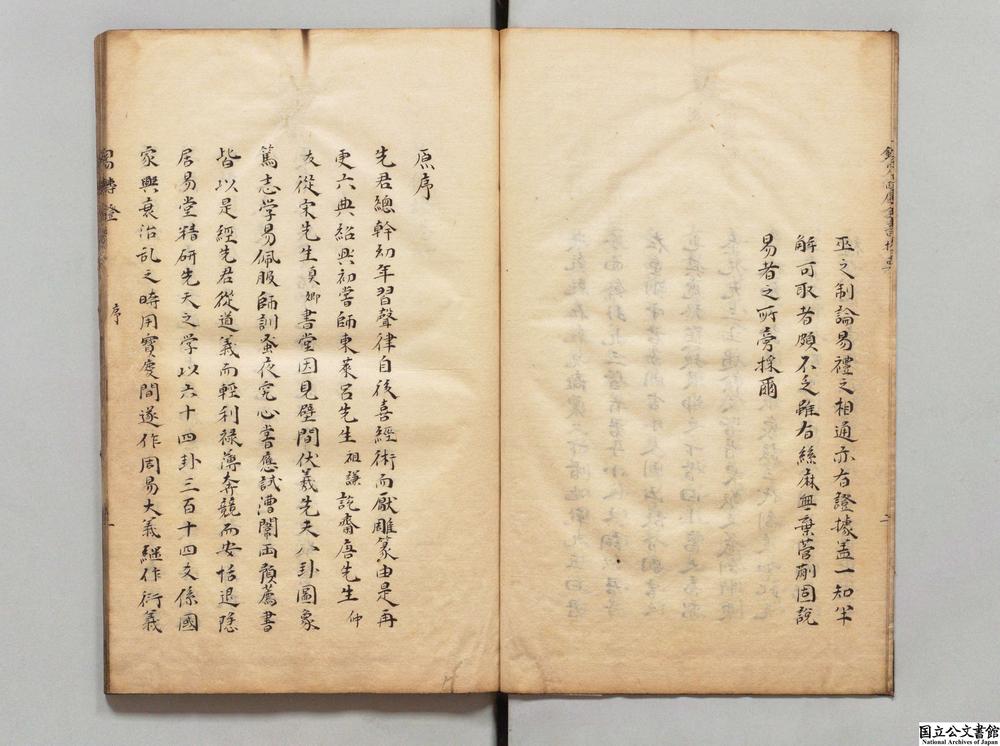 巫之制論易禮之相通亦有證據盖一知半
解可取者頗不乏雖有絲麻無棄菅蒯固說
易者之所旁採爾
原序
先君總幹幼年習聲律自後喜經術而厭雕篆由是再
更六典紹興初嘗師東萊呂先生祖謙說齋唐先生仲
友從宋先生貞卿書堂因見壁間伏羲先天八卦圖象
篤志学易佩服師訓蚤夜究心嘗應試漕闈両預薦書
皆以是經先君從道義而輕利祿薄奔競而安恬退隠
居易堂精研先天之学以六十四卦三百十四爻係國
家興衰治乱之時用寳慶間遂作周易大義継作衍義
序
国立公文書館
National Archives of Japan